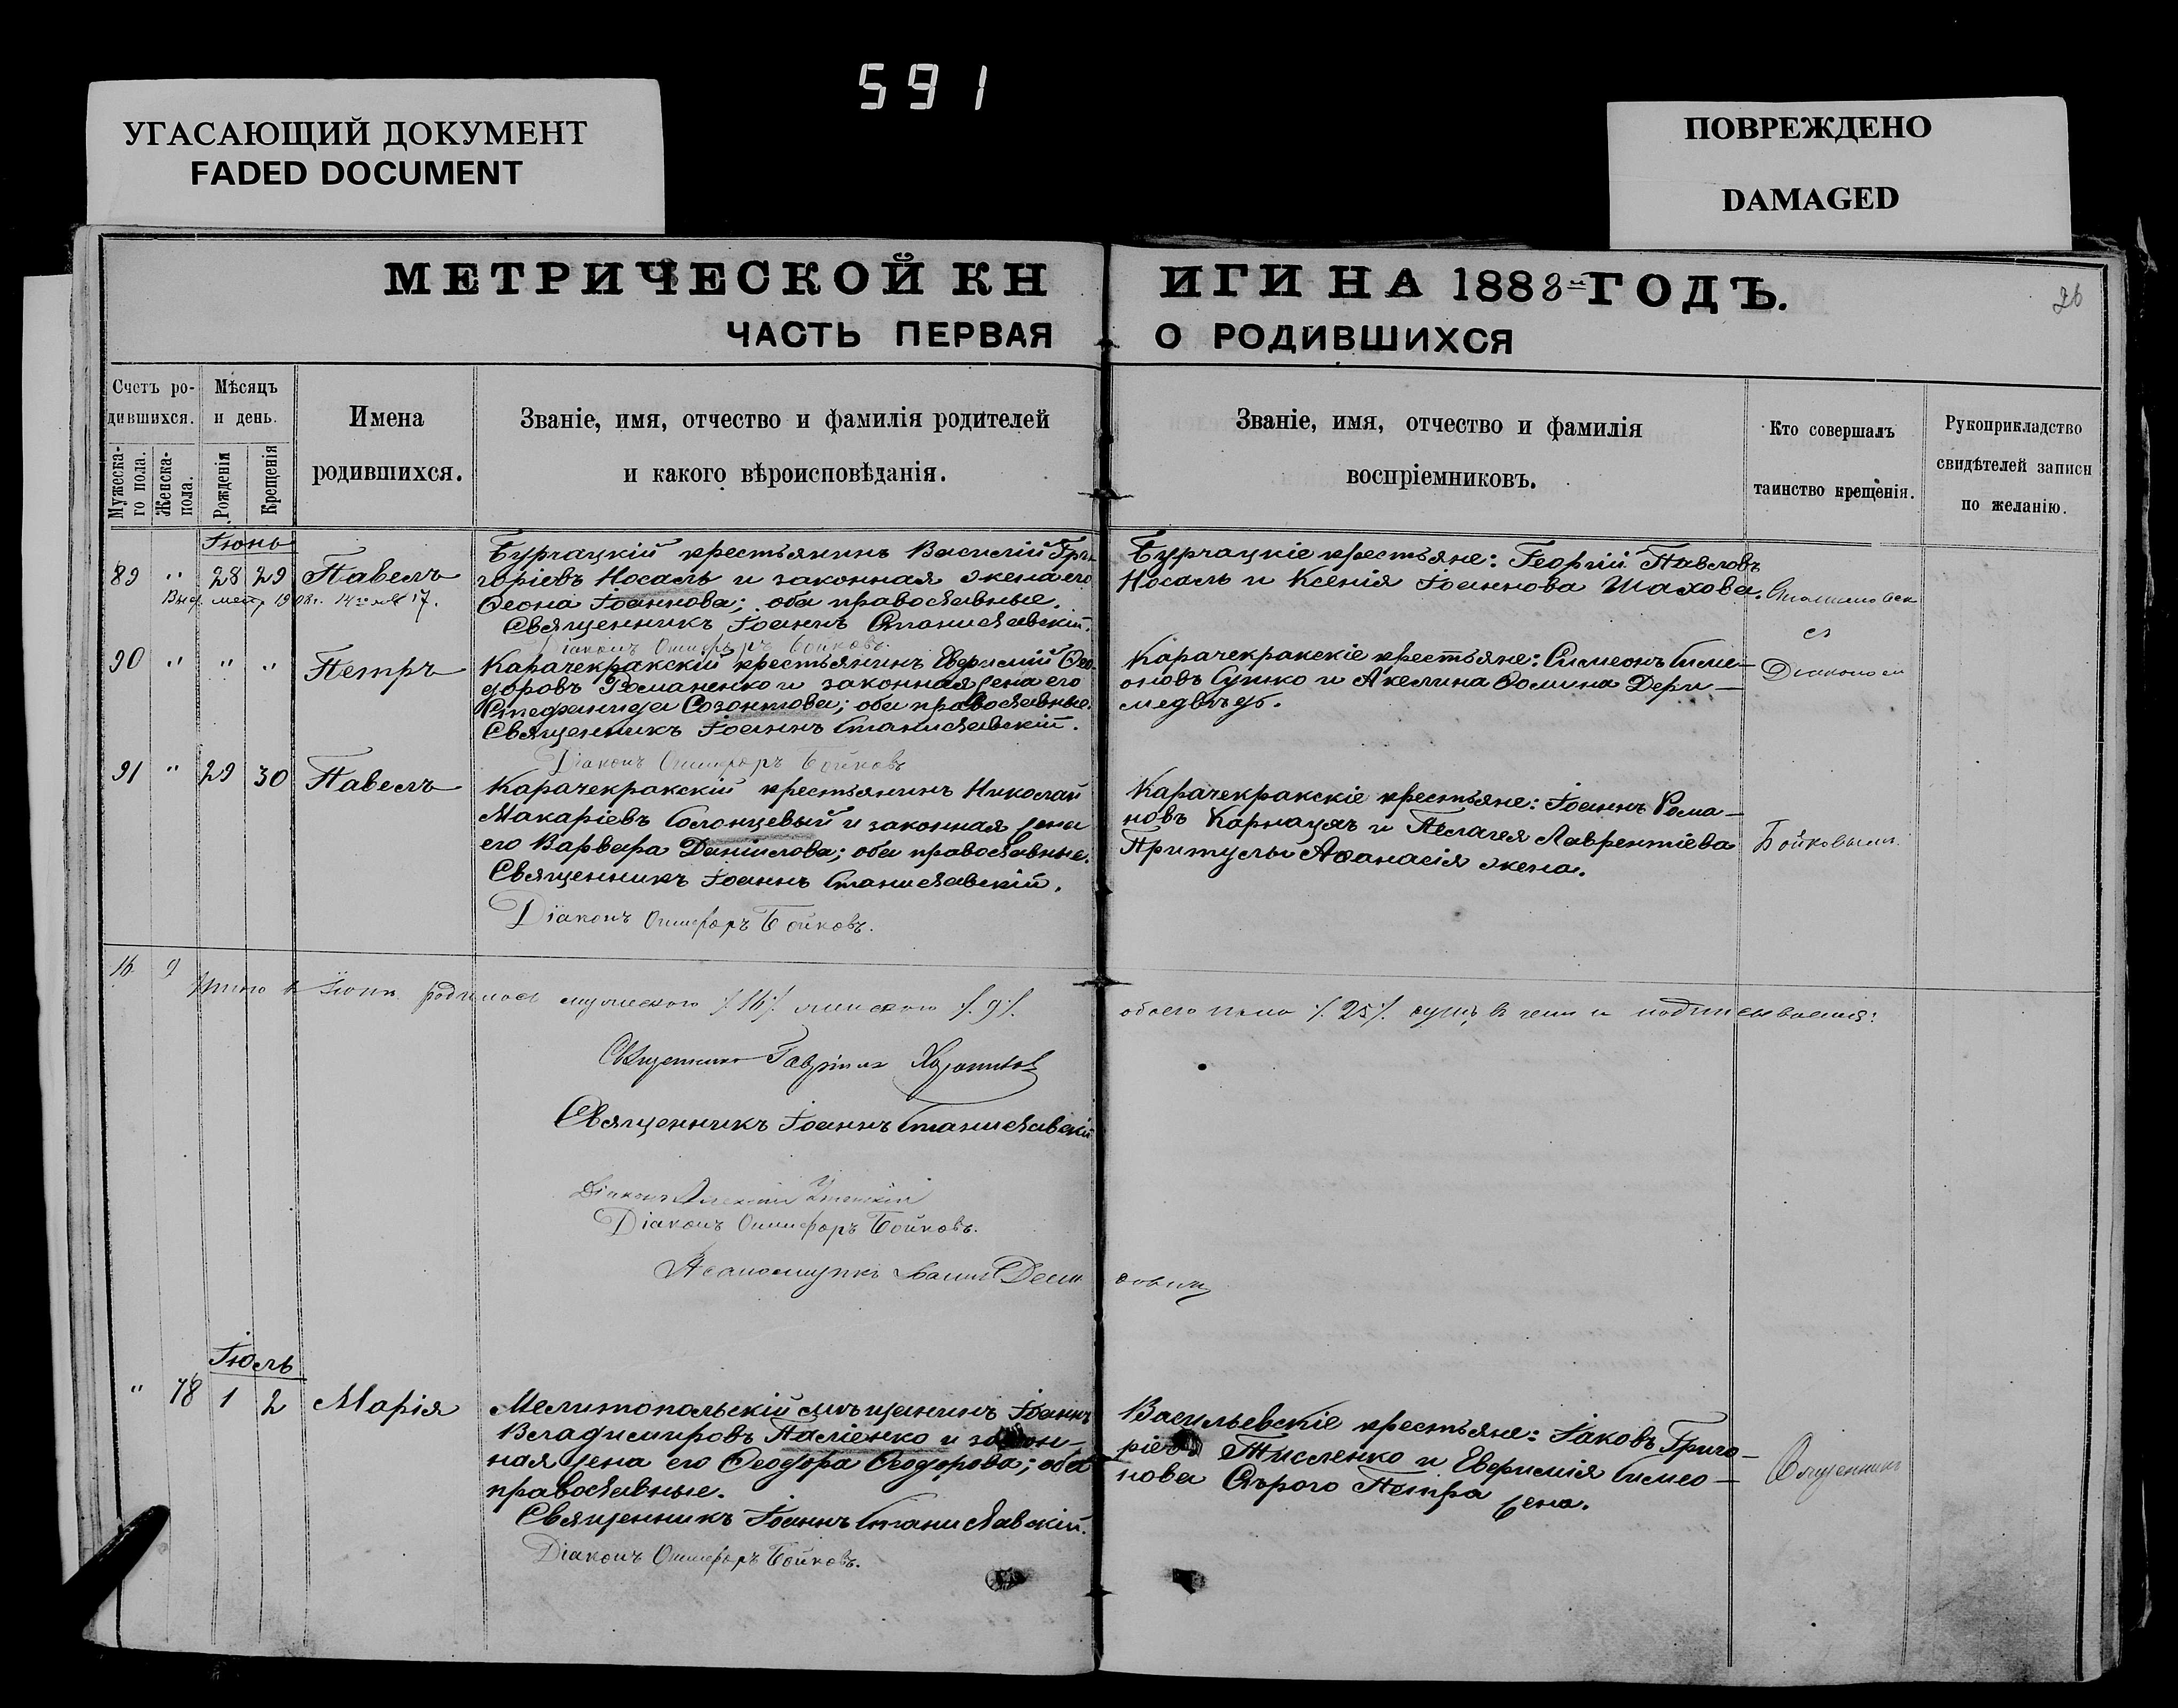 591
УГАСАЮЩИЙ ДОКУМЕНТ
FADED DOCUMENT
ПОВРЕЖДЕНО
DAMAGED
МЕТРИЧЕСКОЙ КН
ИГИ НА 1888й ГОДЪ.
26
ЧАСТЬ ПЕРВАЯ
О РОДИВШИХСЯ
Счетъ ро-
дившихся.
Мужеска-
го пола.
Женска-
пола.
Мѣсяцъ
и день.
Рожденія
Крещенія
Имена
родившихся.
Званіе, имя, отчество и фамилія родителей
и какого вѣроисповѣданія.
Званіе, имя, отчество и фамилія
воспріемниковъ.
Кто совершалъ
таинство крещенія.
Рукоприкладство
свидѣтелей записи
по желанію.
Іюнь
89 " 28 29 Павелъ
Выд. метр. 1908г.
Бурчацкій крестьянинъ Василій Гри-
горіевъ Носаль и законная жена его
Ѳеона Іоаннова; оба православные.
Священникъ Іоаннъ Станиславскій.
Діаконъ Онисифоръ Бойковъ.
Бурчацкіе крестьяне: Георгій Павловъ
Носаль и Ксенія Іоаннова Шахова.
съ
90 " " " Петръ
Карачекракскій крестьянинъ Евфимій Ѳео-
доровъ Романенко и законная жена его
Стефанида Созонтова; оба православные.
Священникъ Іоаннъ Станиславскій.
Діаконъ Онисифоръ Бойковъ
Карачекракскіе крестьяне: Симеонъ Симе-
оновъ Сушко и Акелина Ѳомина Дери-
медвѣдь.
Діакономъ
91 " 29 30 Павелъ
Карачекракскій крестьянинъ Николай
Макаріевъ Солонцевый и законная жена
его Варвара Даніилова; оба православные.
Священникъ Іоаннъ Станиславскій.
Діаконъ Онисифоръ Бойковъ.
Карачекракскіе крестьяне: Іоаннъ Рома-
новъ Карнацкъ и Пелагея Лаврентіева
Притулы Аѳанасія жена.
Бойковымъ.
16 9
Итого въ Іюнѣ родилось мужескаго /.16/. женскаго /.9/.
обоего пола /.25/. въ чемъ и подписываемся:
Священникъ Гавріилъ
Священникъ Іоаннъ Станиславскій
Діаконъ Алексій
Діаконъ Онисифоръ Бойковъ.
Псаломщикъ
Іюль
" 78 1 2 Марія
Мелитопольскій мѣщанинъ Іоаннъ
Владимировъ Паліенко и закон-
ная жена его Ѳеодора Ѳеодорова; оба
православные.
Священникъ Іоаннъ Станиславскій.
Діаконъ Онисифоръ Бойковъ.
Васильевскіе крестьяне: Іаковъ Григо-
ріевъ Тисленко и Евфимія Симео-
нова Сѣрого Петра жена.
Священникъ